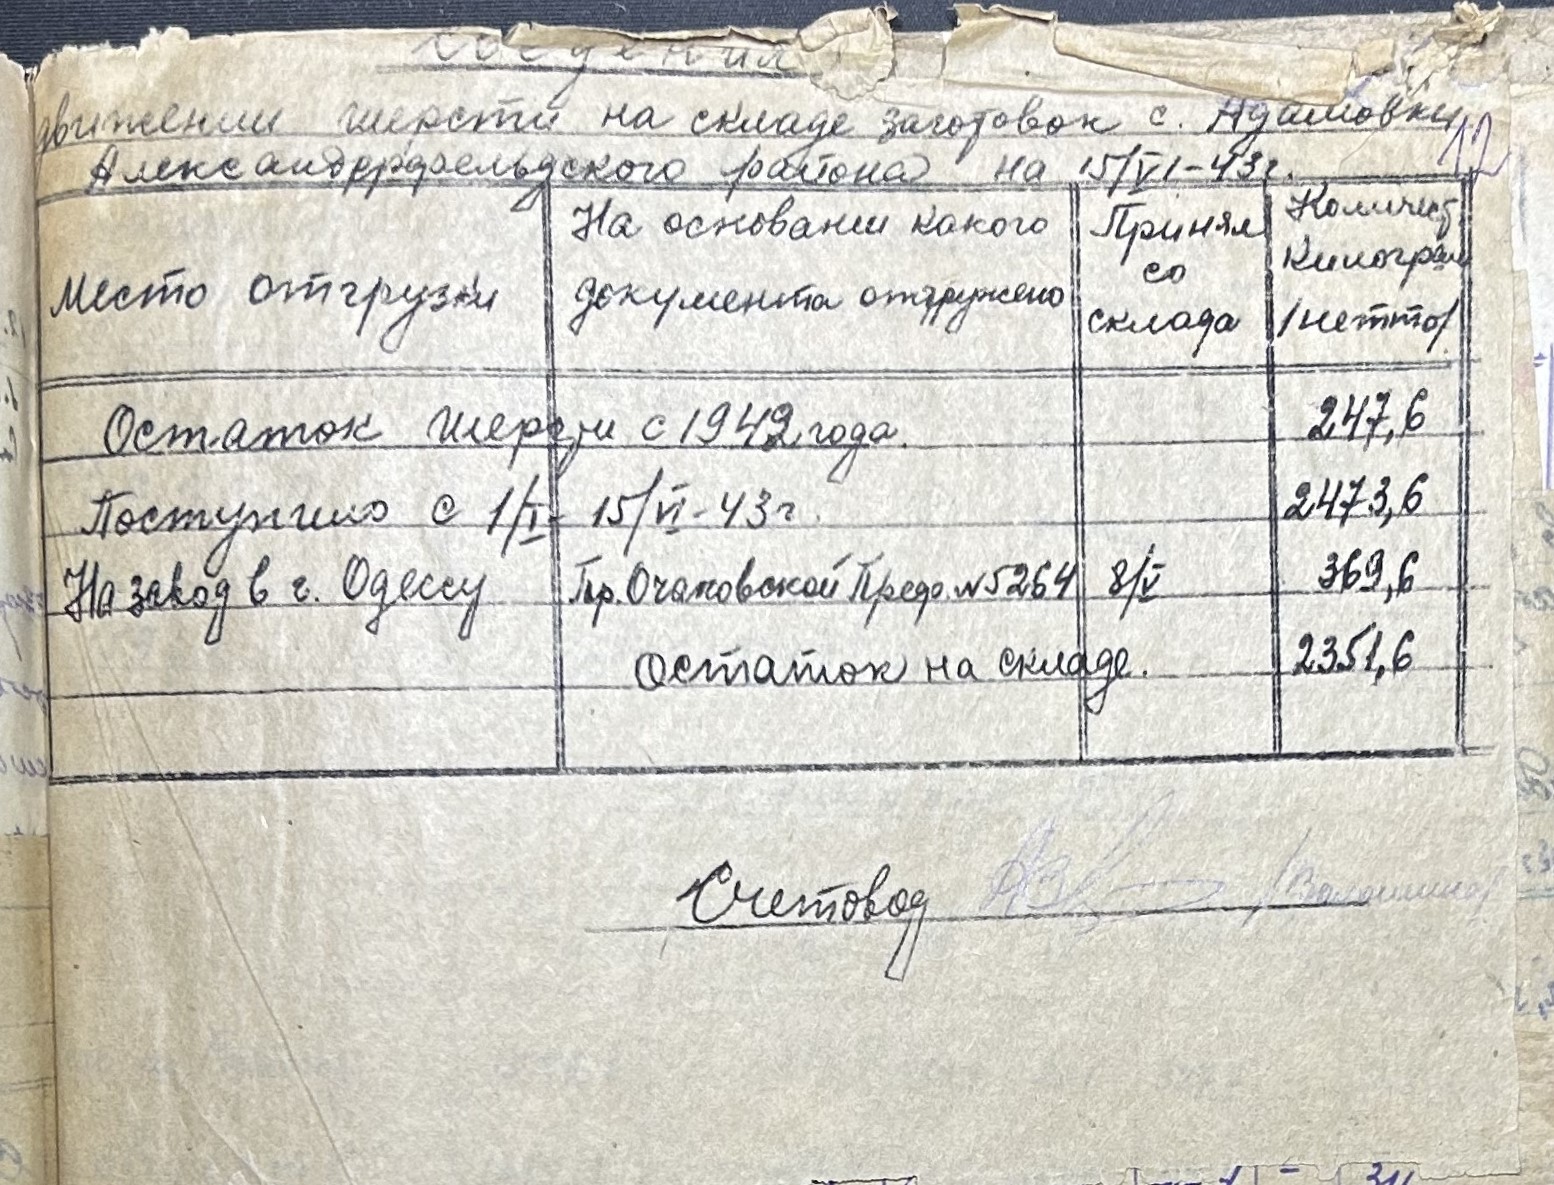 Сведения
движении шерсти на складе заготовок с. Адамовки
12
Александрфельдского района на 15/VI-43г.
Место отгрузки
На основании какого
документа отгружено
Принял
со
склада
Количест
Килограм
/нетто/
Остаток шерсти с 1942 года. 247,6
Поступило с 1/I- 15/VI-43г. 2473,6
На завод в г. Одессу Пр. Очаковской Преф. №5264 8/V 369,6
Остаток на складе. 2351,6
Счетовод